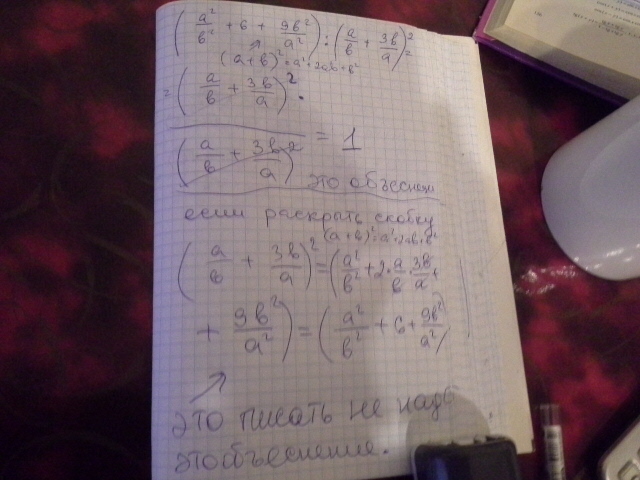 (a²/в² + 6 + 9в²/a²) : (a/в + 3в/a)² =
(a+в)² = a²+2aв+в²
= (a/в + 3в/a)² .
(a/в + 3в/a)² = 1
это объеснени
если раскрыть скобку
(a+в)²=a²+2aв+в²
(a/в + 3в/a)² = (a²/в² + 2·a/в·3в/a +
+ 9в²/a²) = (a²/в² + 6 + 9в²/a²)
это писать не надо
это объеснение.